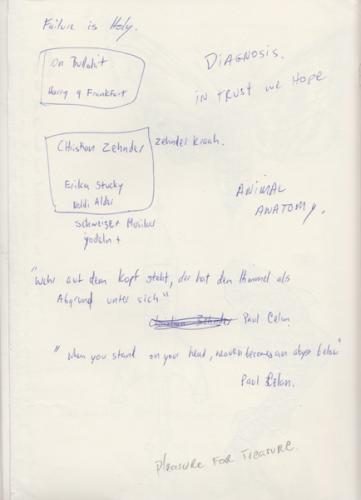 Failure is Holy.
On Bullshit.
Harry G Frankfurt
DIAGNOSIS.
IN TRUST WE HOPE
Christian Zehnder
Zehnder Kraah.
Erika Stucky
Noldi Alder
Schweizer Musiker
jodeln +
ANIMAL
ANATOMY.
"Wehr auf dem Kopf steht, der hat den Himmel als
Abgrund unter sich"
Christian Zehnder Paul Celan
"When you stand on your head, heaven becomes an abyss below"
Paul Celan.
PLEASURE FOR TREASURE.